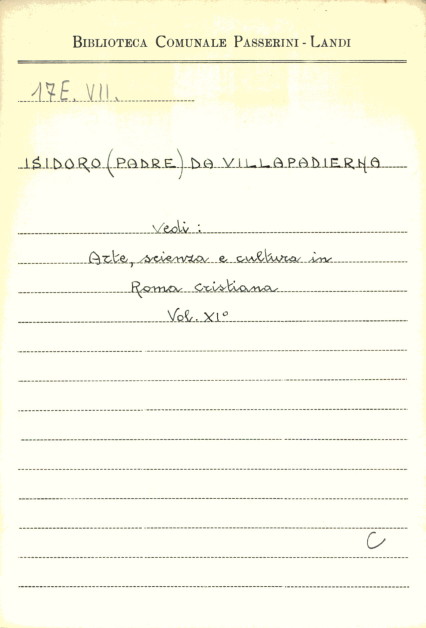 BIBLIOTECA COMUNALE PASSERINI - LANDI
17E. VII.
ISIDORO (PADRE) DA VILLAPADIERNA
Vedi:
Arte, scienza e cultura in
Roma cristiana
Vol. XI°
C